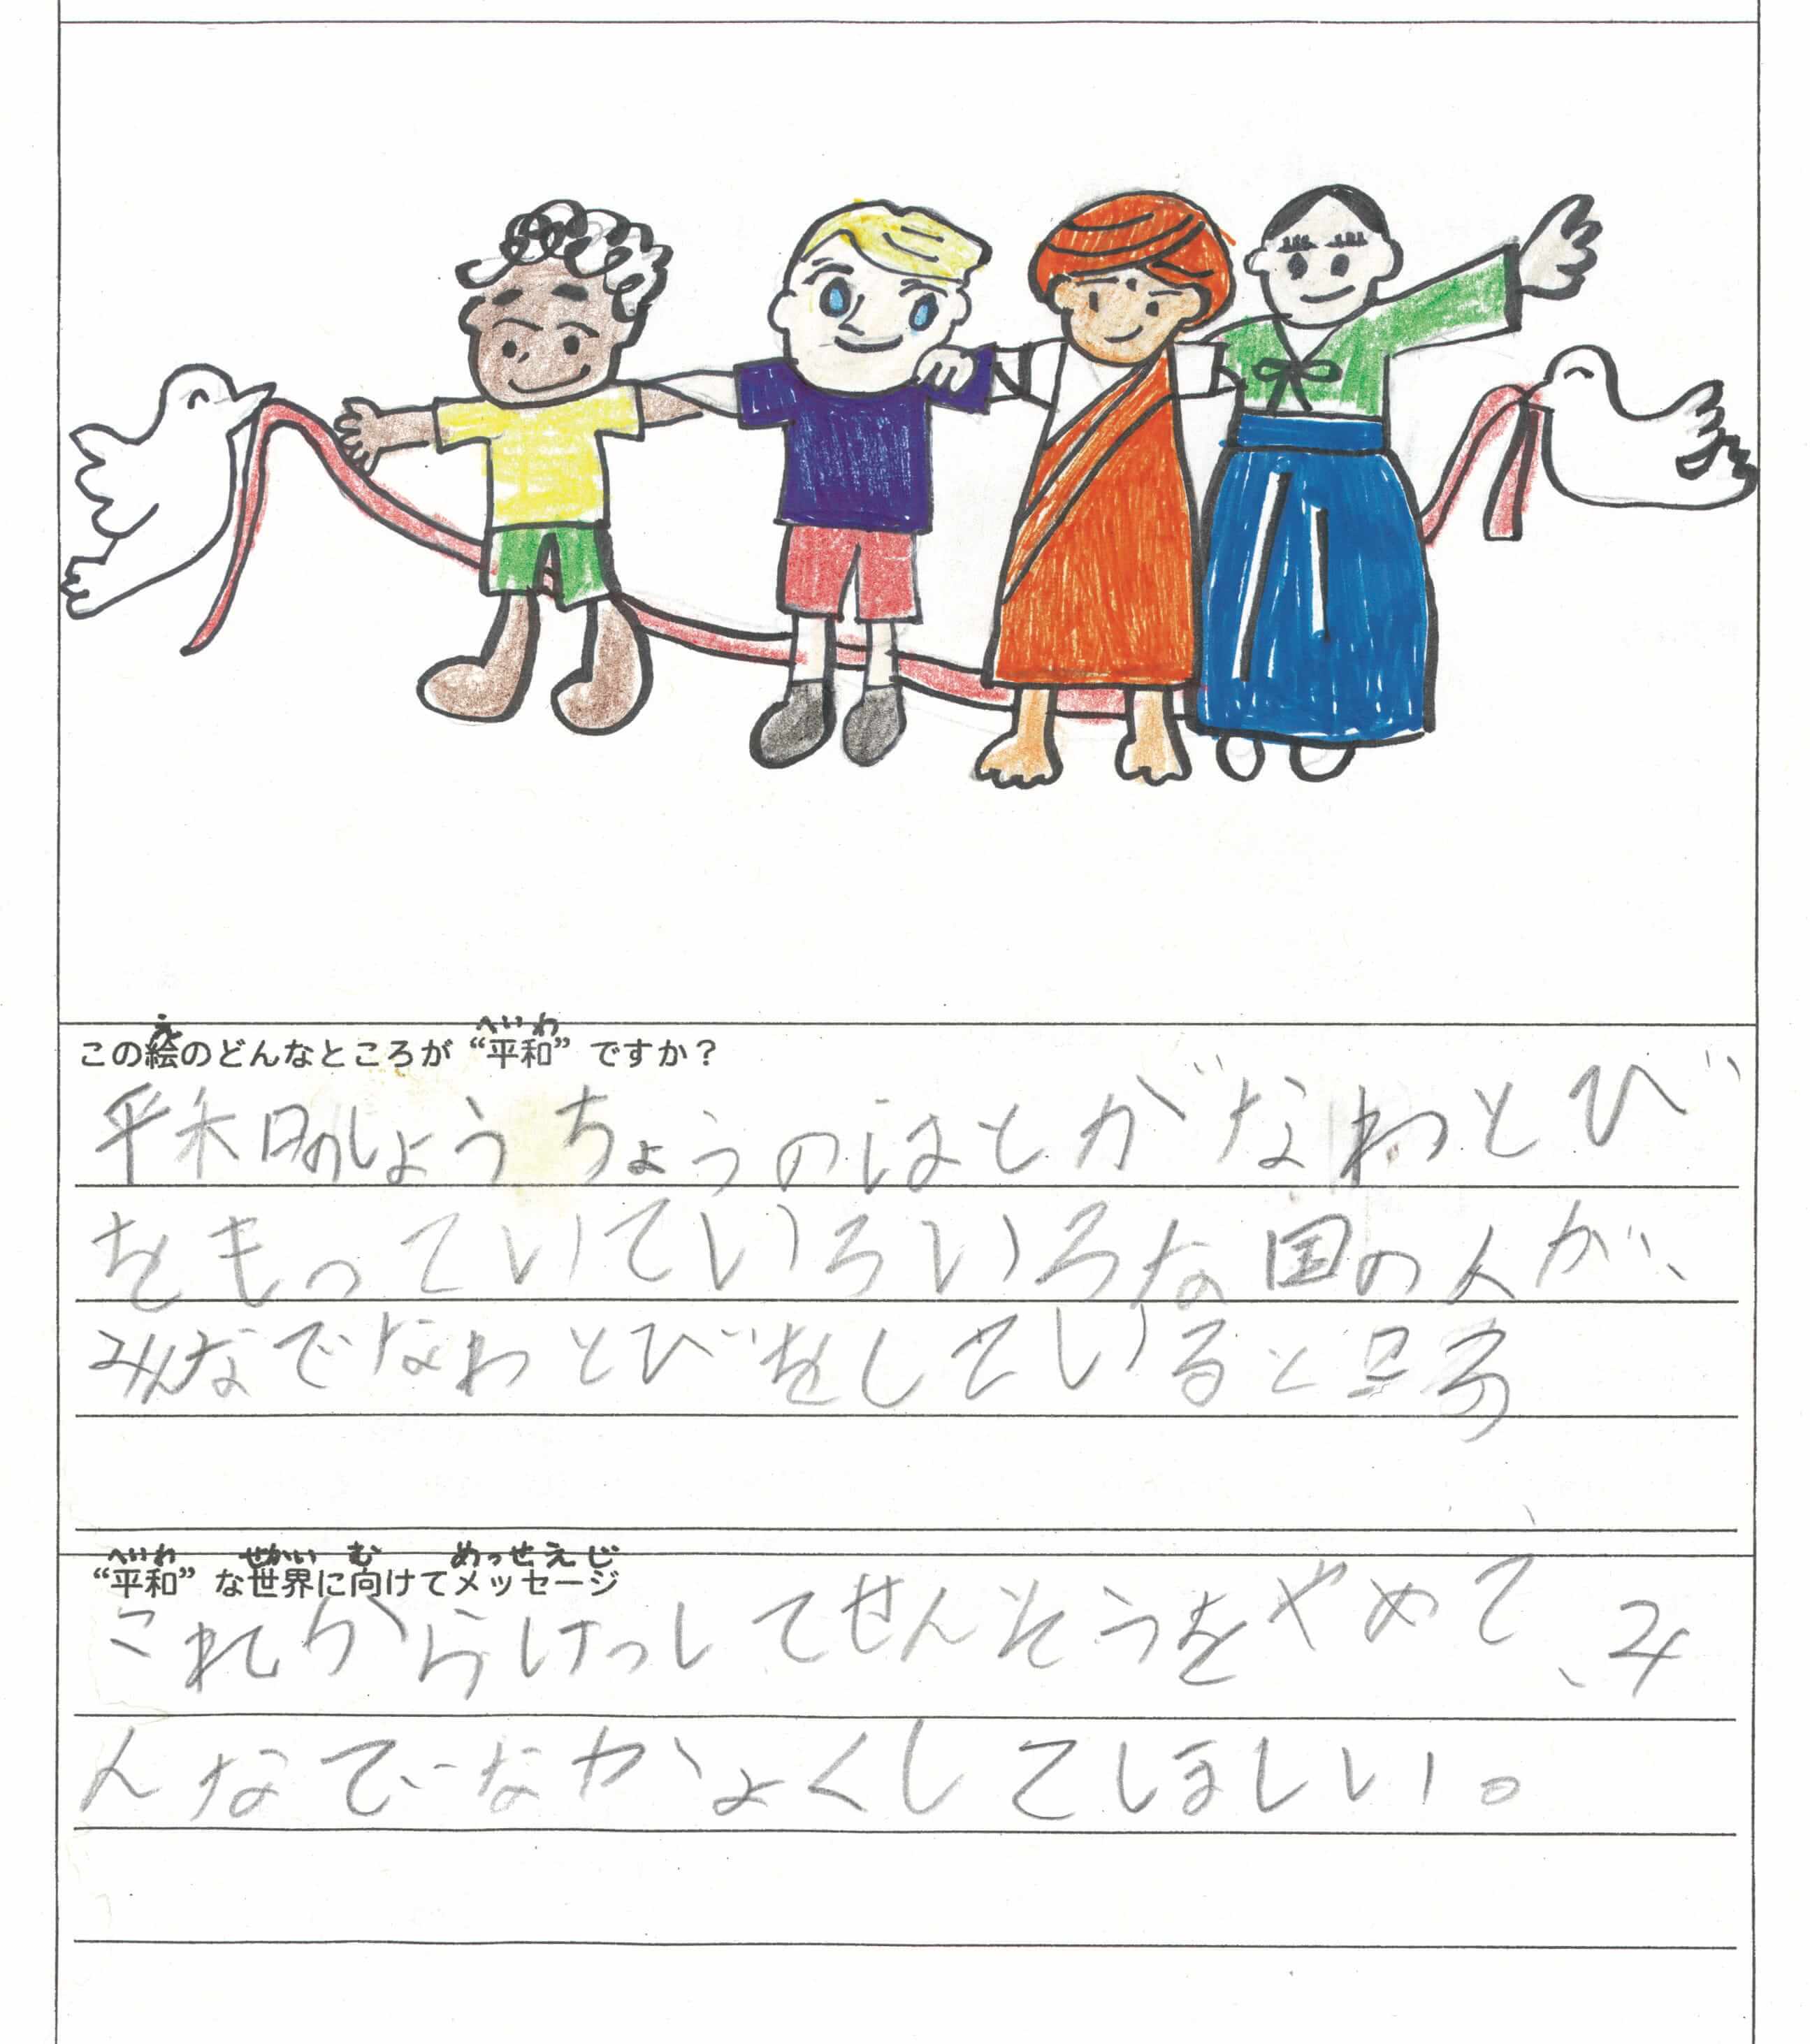 え へいわ
この絵のどんなところが“平和”ですか？
平和のしょうちょうのはとがなわとび
をもっていていろいろな国の人が、
みんなでなわとびをしているところ
へいわ せかい む めっせえじ
“平和”な世界に向けてメッセージ
これからけっしてせんそうをやめて、み
んなでなかよくしてほしい。